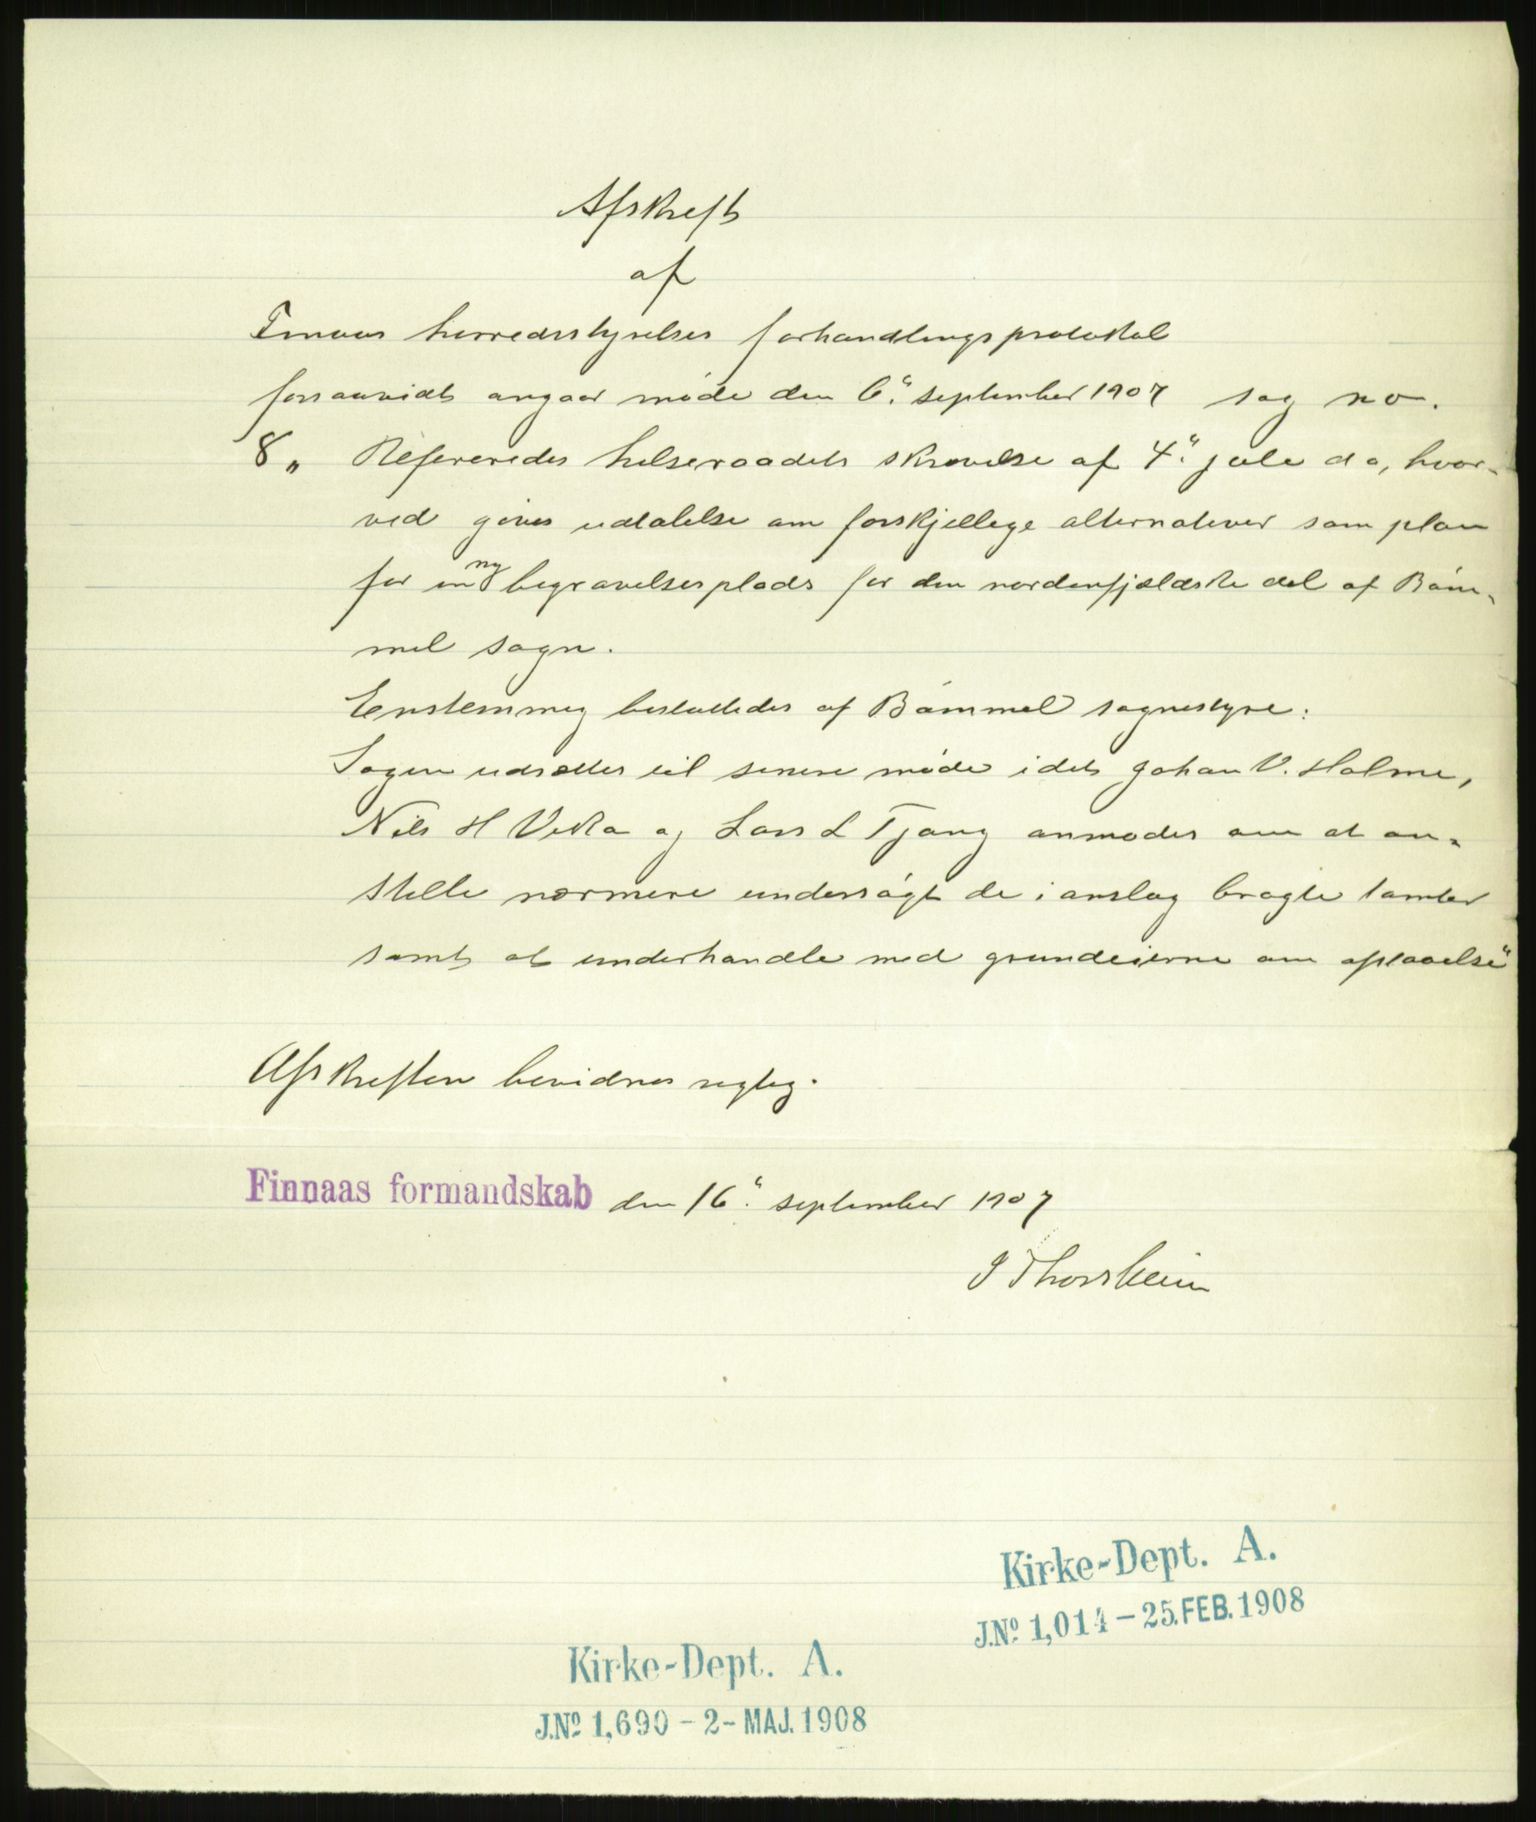 Afskrift
af
Finnaas herredsstyrelses forhandlingsprotokol
forsaavidt angaar møde den 6." september 1907 sag no.
8 " Refereredes helseraadets skrivelse af 4." jule d a, hvor-
ved gives udtalelse om forskjellige alternativer som plan
for en ny begravelsesplads for den nordenfjeldske del af Bøm-
mel sogn.
Enstemmig besluttedes af Bømmel sognestyre:
Sagen udsættes til senere møde idet Johan V. Holme,
Nils H Vika og Lars L Tjong anmodes om at an-
stille nærmere undersøgt de i anslag bragte tomter
samt at underhandle med grundeierne om afstaaelse"
Afskriften bevidnes rigtig.
Finnaas formandskab den 16." september 1907
J Thorsheim
Kirke-Dept. A.
J.No. 1,014 - 25. FEB. 1908
Kirke-Dept. A.
J.No. 1,690 - 2 - MAJ. 1908